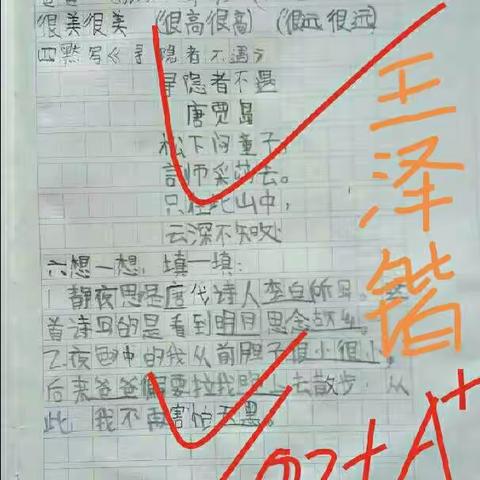 很美很美 (很高很高) (很远很远)
四默写《寻隐者不遇》
寻隐者不遇
唐贾岛
松下问童子,
言师采药去。
只在此山中,
云深不知处
六想一想,填一填:
1 静夜思是唐代诗人李白所写。
首诗写的是看到明月思念故乡。
2.夜色中的我从前胆子很小很小,
后来爸爸偏要拉我晚上去散步,从
此 我不再害怕天黑。
王泽锴
A+